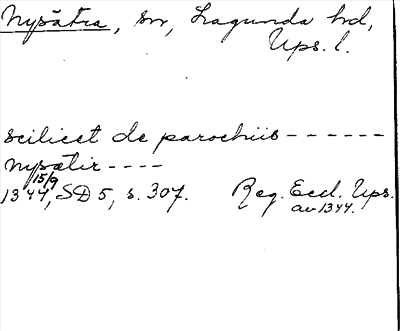 Nysätra, sn, Lagunda hd,
Ups. l.
scilicet de parochiis ------
nysætir ----
15/9
1344, SD 5, s. 307. Reg. Eccl. Ups.
av 1344.